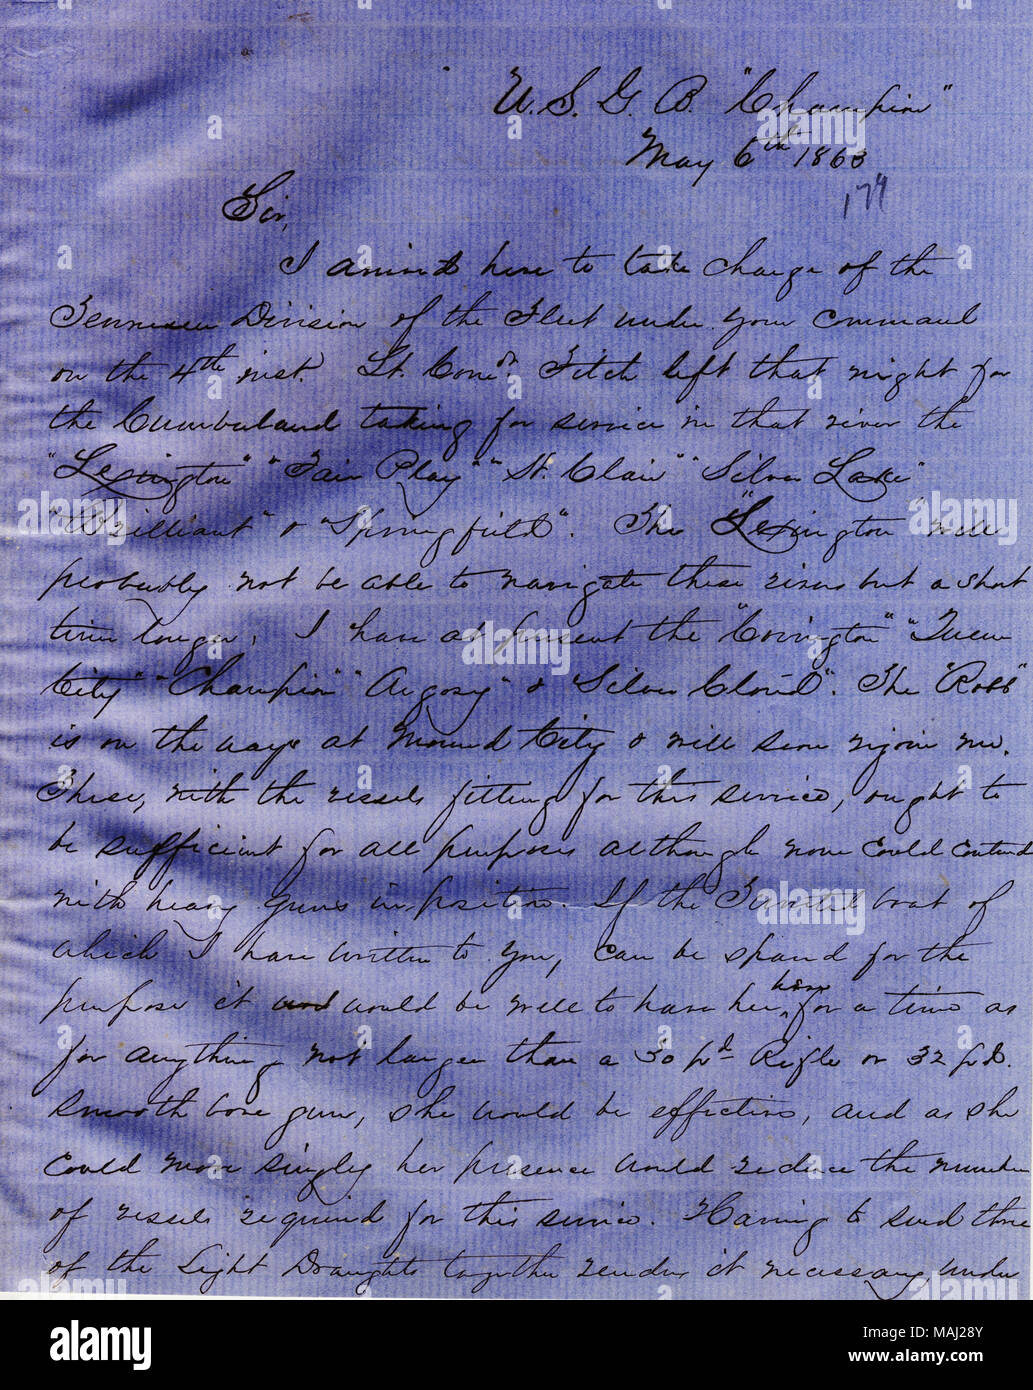 U. S. G. B. "Champion"
May 6th 1863
179
Sir,
I arrived here to take charge of the
Tennessee Division of the Fleet under your command
on the 4th inst. Lt. Comdr Fitch left that night for
the Cumberland taking for service in that river the
"Lexington" "Fair Play" "St. Clair" "Silver Lake"
"Brilliant" & "Springfield". The "Lexington" will
probably not be able to navigate these rivers but a short
time longer. I have at present the "Covington" "Queen
City" "Champion" "Argosy" & "Silver Cloud". The "Robb"
is on the ways at Mound City & will soon rejoin me.
These, with the vessels fitting for this service, ought to
be sufficient for all purposes although none could contend
with heavy guns in position. If the Turreted boat of
which I have written to you, can be spared for the
purpose it would be well to have her here for a time as
for anything not larger than a 30 pd Rifle or 32 pd.
smooth bore gun, she would be effective, and as she
could move singly her presence would reduce the number
of vessels required for this service. Having to send three
of the Light Draughts together renders it necessary, under
alamy
Image ID: MAJ28Y
www.alamy.com